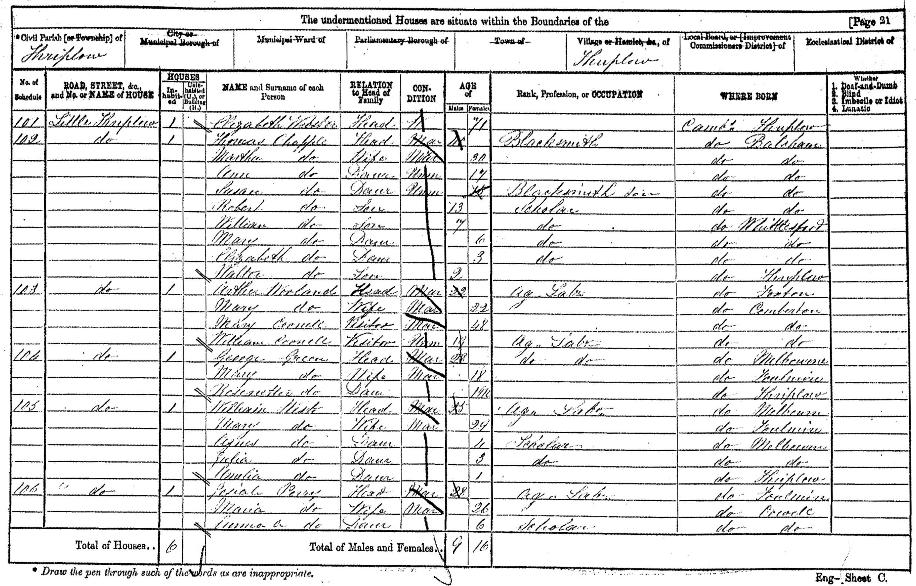 The undermentioned Houses are situate within the Boundaries of the [Page 21
*Civil Parish [or Township] of City or Municipal Borough of Municipal Ward of Parliamentary Borough of Town of Village or Hamlet, &c., of Local Board, or [Improvement Commissioners District] of Ecclesiastical District of
Thriplow Thriplow
No. of Schedule ROAD, STREET, &c., and No. or NAME of HOUSE HOUSES Inhabited Uninhabited (U.) or Building (B.) NAME and Surname of each Person RELATION to Head of Family CONDITION AGE of Males Females Rank, Profession, or OCCUPATION WHERE BORN Whether 1. Deaf-and-Dumb 2. Blind 3. Imbecile or Idiot 4. Lunatic
101 Little Thriplow 1 Elizabeth Webster Head 71 Camb's Thriplow
102 do 1 Thomas Head Mar Blacksmith do Balsham
Martha do Wife Mar do do
Ann do Daur Unm 17 do do
Susan do Daur Unm Blacksmith do do
Robert do Son 13 Scholar do do
William do Son 7 do do Whittlesford
Mary do Daur 6 do do do
Elizabeth do Daur 3 do do do
Walter do Son 2 do Thriplow
103 do 1 Arthur Head Mar 22 Ag. Labr do Foxton
Mary do Wife Mar 22 do Comberton
Mary Cornell Visitor Mar 48 do do
William Cornell Visitor Unm 18 Ag. Labr do do
104 do 1 George Green Head Mar 28 do do do Melbourne
Mary do Wife Mar 18 do Foulmire
do Daur do Thriplow
105 do 1 William Head Mar 25 Ag. Labr do Melbourn
Mary do Wife Mar 24 do Foulmire
Agnes do Daur 4 Scholar do Melbourne
Julia do Daur 3 do do do
Amelia do Daur 1 do Thriplow
106 do 1 Josiah Perry Head Mar 28 Ag. Labr do Foulmire
Maria do Wife Mar 26 do
Emma A do Daur 6 Scholar do do
Total of Houses.. 6 Total of Males and Females.. 9 16
* Draw the pen through such of the words as are inappropriate. Eng—Sheet C.